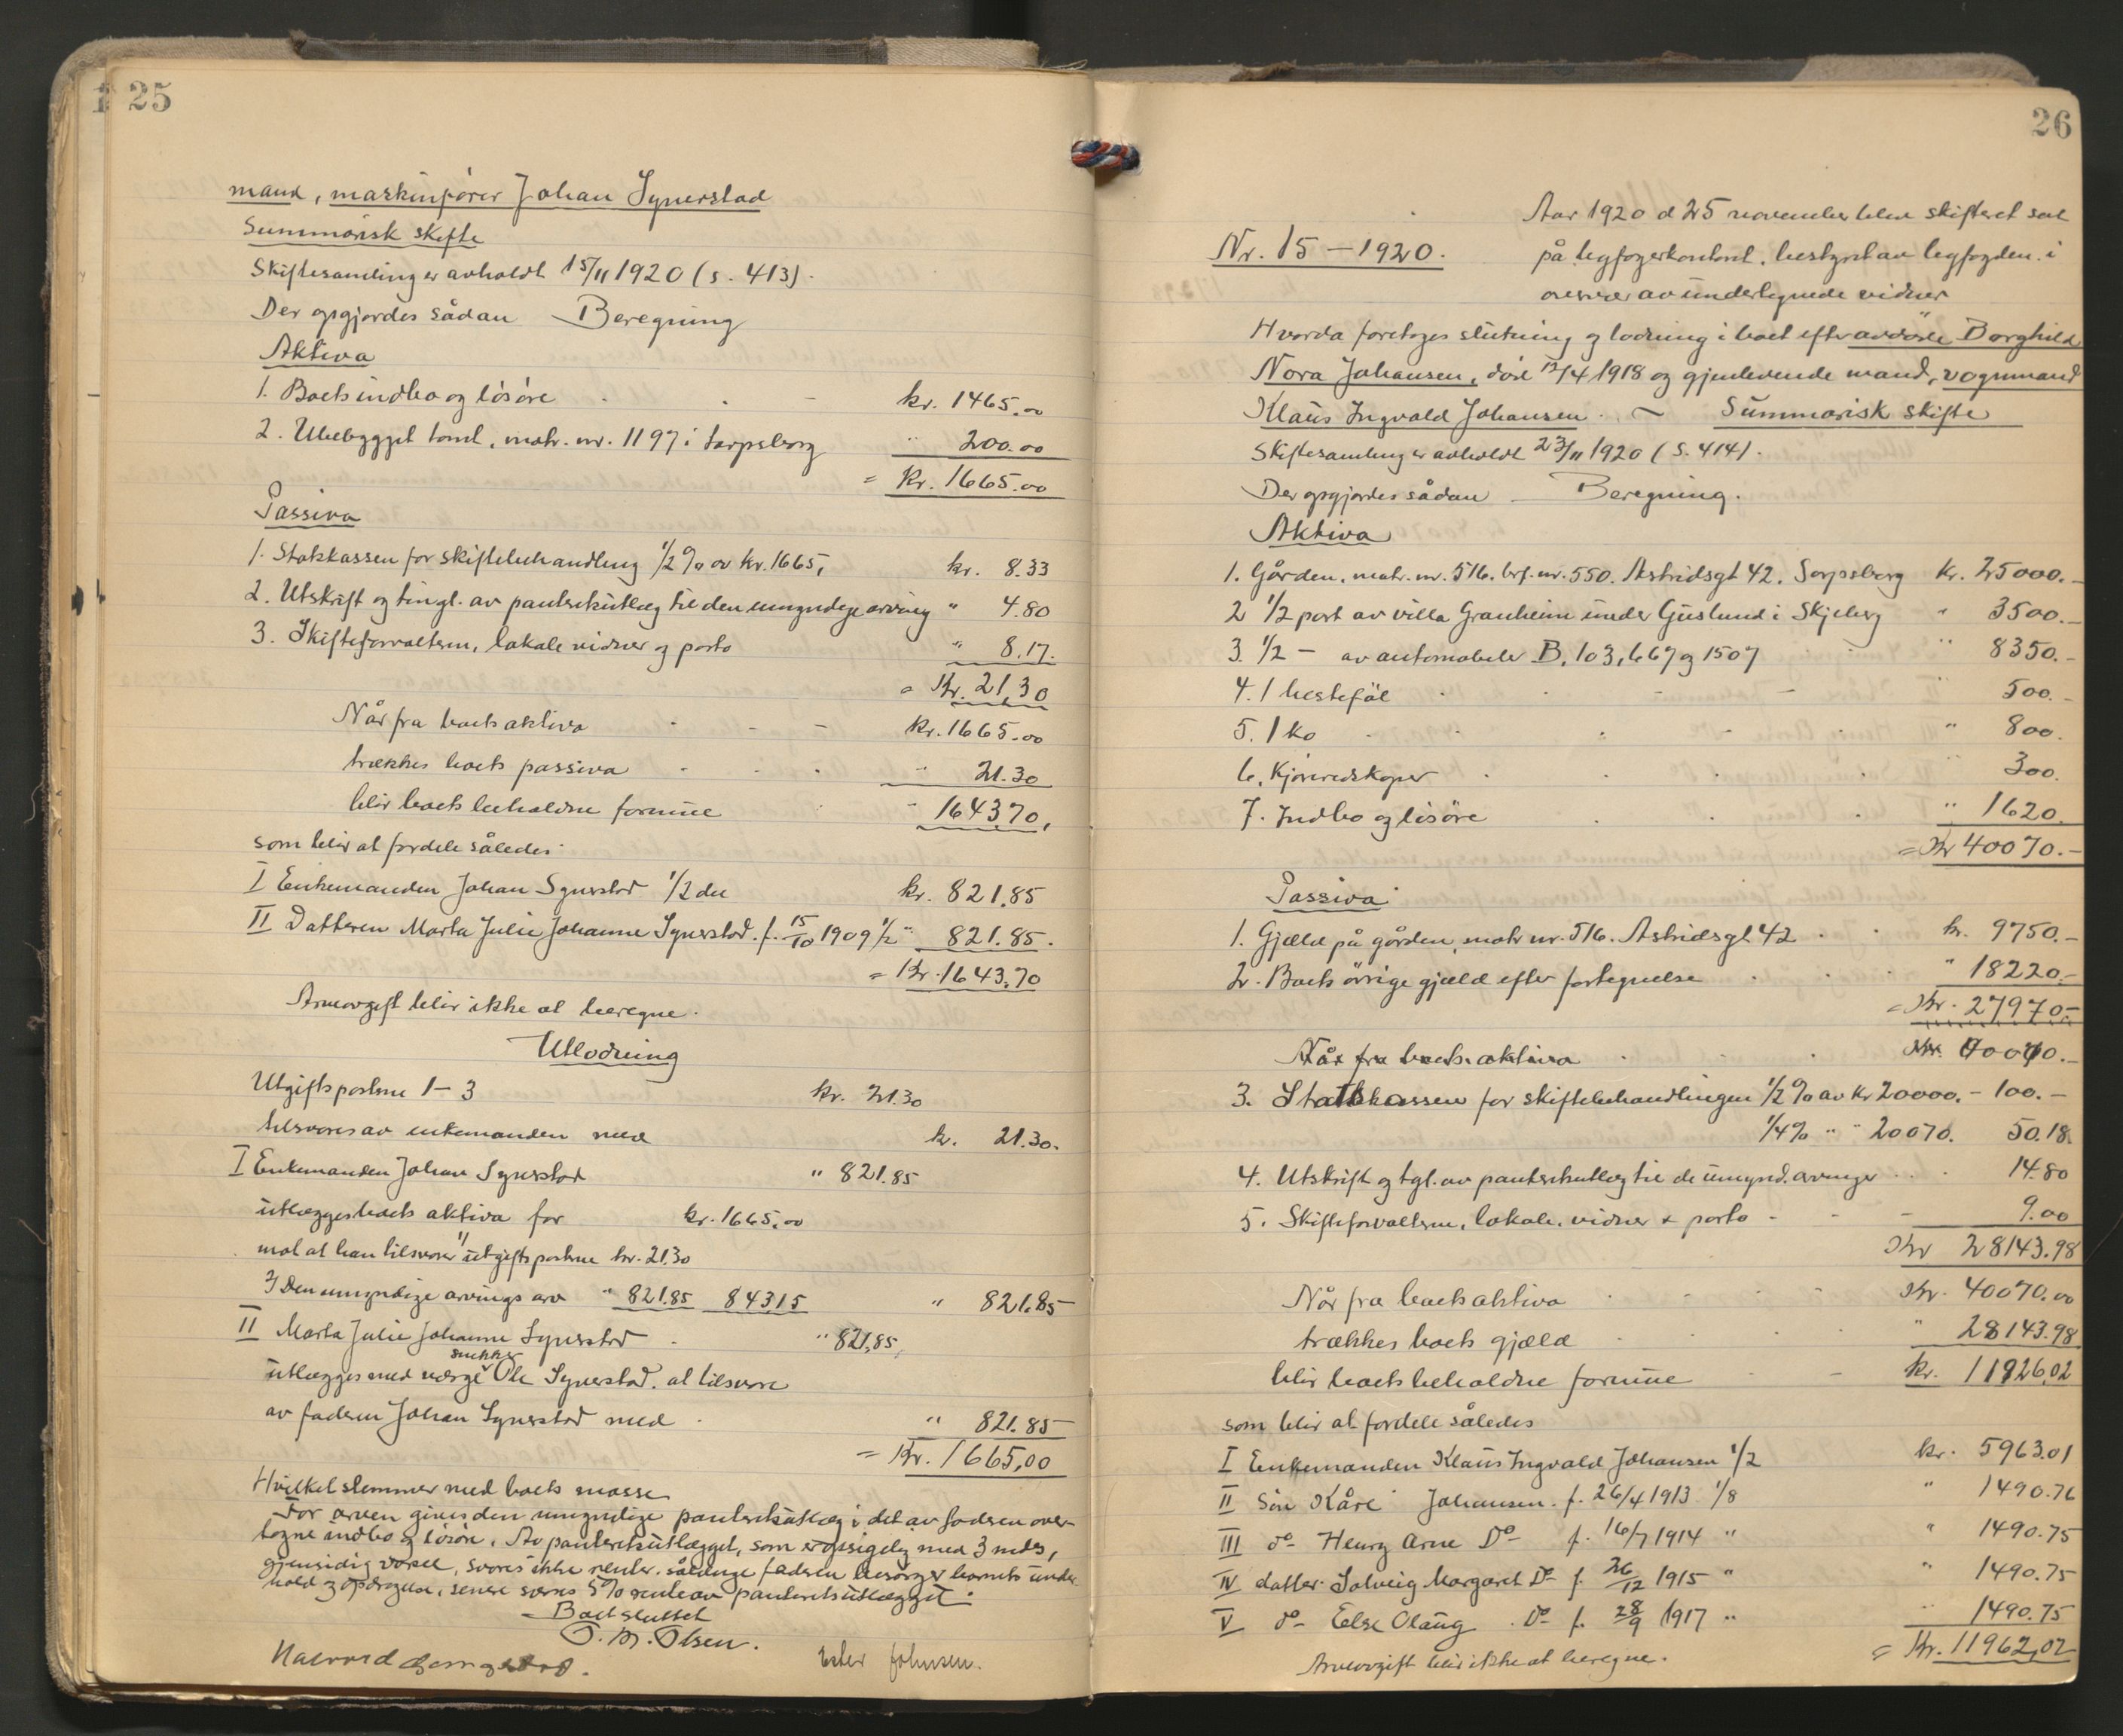 25
mand, maskinfører Johan Synerstad
Summarisk skifte
Skiftesamling er avholdt 15/11 1920 (s. 413).
Der opgjordes sådan Beregning
Aktiva
1. Boets indbo og løsøre kr. 1465.00
2. Ubebygget tomt, matr. nr. 1197 i Sarpsborg " 200.00
= Kr. 1665.00
Passiva
1. Statskassen for skiftebehandling 1/2 % av kr. 1665, kr. 8.33
2. Utskrift og tingl. av panteretsutlæg til den umyndige arving " 4.80
3. Skifteforvalteren, lokale vidner og porto " 8.17.
= Kr. 21,30
Når fra boets aktiva kr. 1665.00
trækkes boets passiva " 21.30
blir boets beholdne formue " 1643,70,
som blir at fordele således
I Enkemanden Johan Synerstad 1/2 del kr. 821.85
II Datteren Marta Julie Johanne Synerstad. f. 15/10 1909 1/2 " 821.85.
= Kr. 1643.70
Arveavgift blir ikke at beregne.
Utlodning
Utgiftsposterne 1-3 kr. 21.30
tilsvares av enkemanden med kr. 21.30.
I Enkemanden Johan Synerstad " 821.85
utlægges boets aktiva for kr. 1665,00
mot at han tilsvarer 1/ utgiftsposterne kr. 21.30
2/ Den umyndige arvings arv " 821.85 843,15 " 821.85
II Marta Julie Johanne Synerstad " 821,85,
snekker
utlægges med værge Ole Synerstad. at tilsvare
av faderen Johan Synerstad med " 821.85
= Kr. 1665,00
Hvilket stemmer med boets masse
For arven gives den umyndige panteretsutlæg i det av faderen over-
tagne indbo og løsøre. Av panteretsutlægget, som er opsigelig med 3 mdrs,
gjensidig varsel, svares ikke renter. sålænge faderen besørger barnets under-
hold og opdragelse, senere svares 5% rente av panteretsutlægget.
Boet sluttet
O. M. Olsen.
Ester Johnsen.
26
Aar 1920 d 25 november blev skifteret sat
Nr. 15 – 1920. på byfogedkontoret, bestyret av byfogden i
overvær av undertegnede vidner
Hvorda foretoges slutning og lodning i boet efter avdøde Borghild
Nora Johansen, død 12/4 1918 og gjenlevende mand, vognmand
Klaus Ingvald Johansen. ~ Summarisk skifte
Skiftesamling er avholdt 23/11 1920 (s. 414).
Der opgjordes sådan Beregning.
Aktiva
1. Gården, matr. nr. 516. brf. nr. 550. Astridsgt 42. Sarpsborg Kr. 25000.-
2 1/2 part av villa Granheim under Guslund i Skjeberg " 3500.-
3. 1/2 – av automobiler B. 103, 667 og 1507 " 8350.-
4. 1 hesteføl " 500.-
5. 1 ko " 800.
6. Kjøreredskaper " 300.
7. Indbo og løsøre " 1620.
= Kr 40070.-
Passiva
1. Gjæld på gården, matr nr. 516. Astridsgt 42 kr. 9750.-
2. Boets øvrige gjæld efter fortegnelse " 18220.-
= Kr. 27970.-
Når fra boets aktiva Kr. 40070.-
3. Statskassen for skiftebehandlingen 1/2 % av kr 20000.- 100.-
1/4% " " 20070. 50.18.
4. Utskrift og tgl. av panteretsutlæg til de umynd. arvinger 14.80
5. Skifteforvalteren, lokale. vidner & porto 9.00
Kr 28143.98
Når fra boets aktiva Kr. 40070.00
trækkes boets gjæld " 28143.98
blir boets beholdne formue kr. 11926,02
som blir at fordele således
I Enkemanden Klaus Ingvald Johansen 1/2 kr. 5963.01
II Søn Kåre Johansen. f. 26/4 1913 1/8 " 1490.76
III do Henry Arne Do f. 16/7 1914 " " 1490.75
IV datter Solveig Margaret Do f. 26/12 1915 " " 1490.75
V do Else Olaug Do f. 28/9 1917 " " 1490.75
= Kr. 11962,02
Arveavgift blir ikke at beregne.